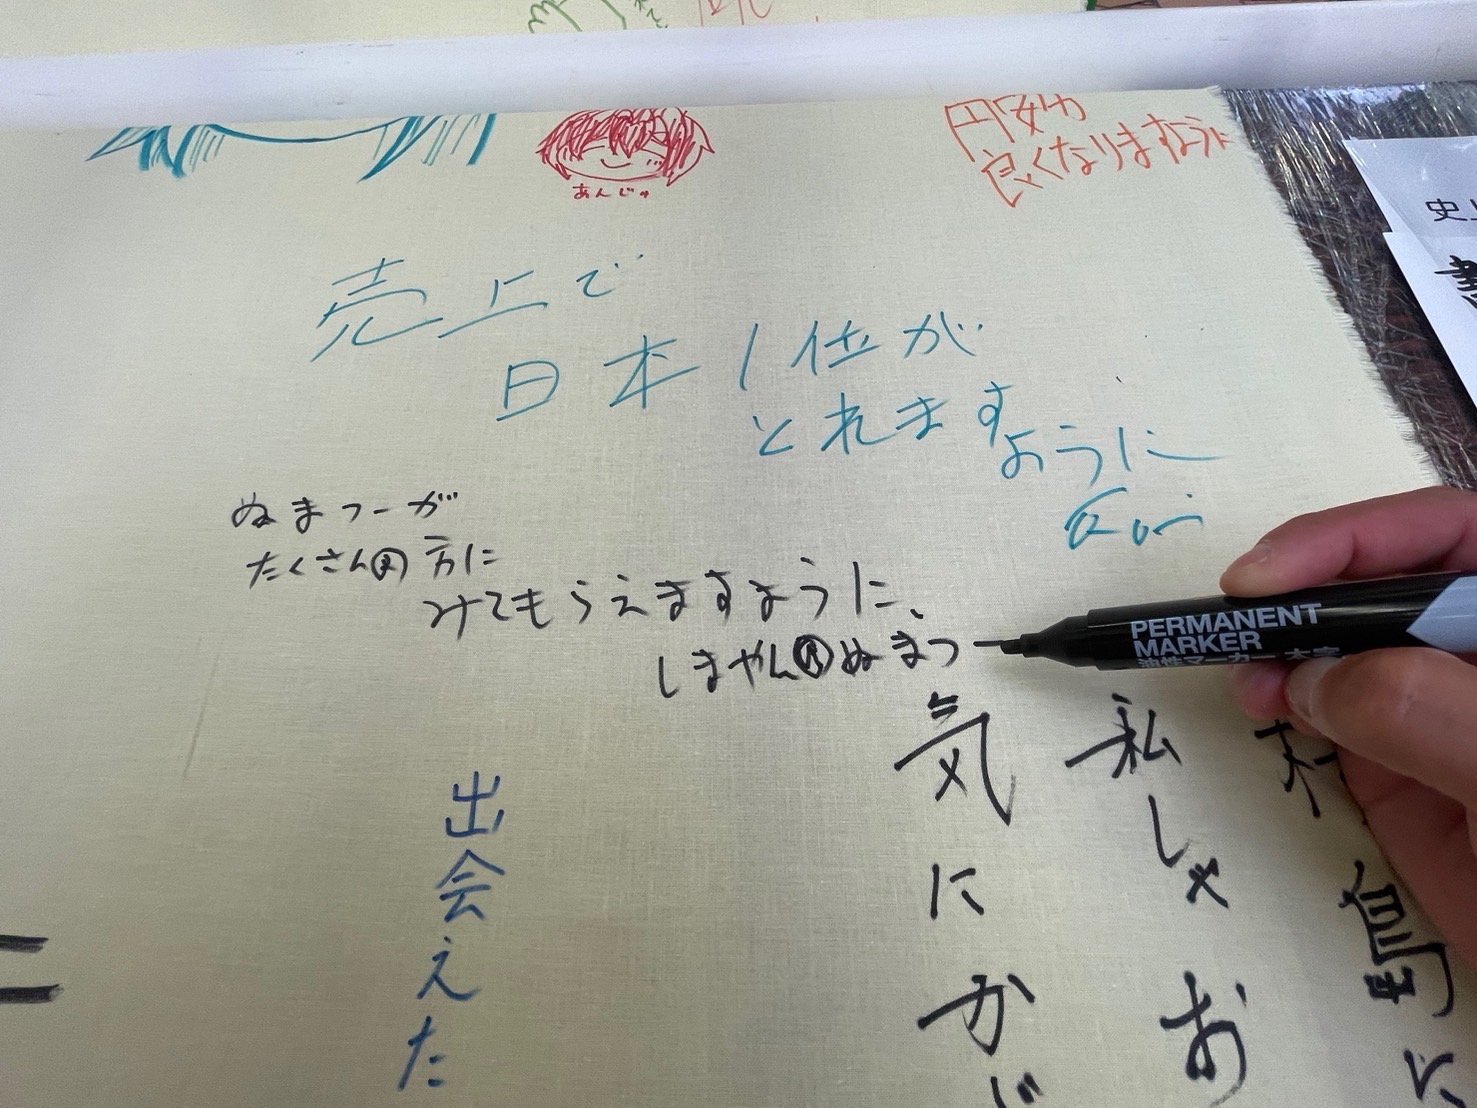 円安が
良くなりますように
あんじゅ
売上で
日本1位が
とれます
ように
ぬまつーが
たくさんの方に
みてもらえますように、
しまやん@ぬまつー
PERMANENT
MARKER
油性マーカー 太字
私しゃお
気にかじ
出会えた
史上